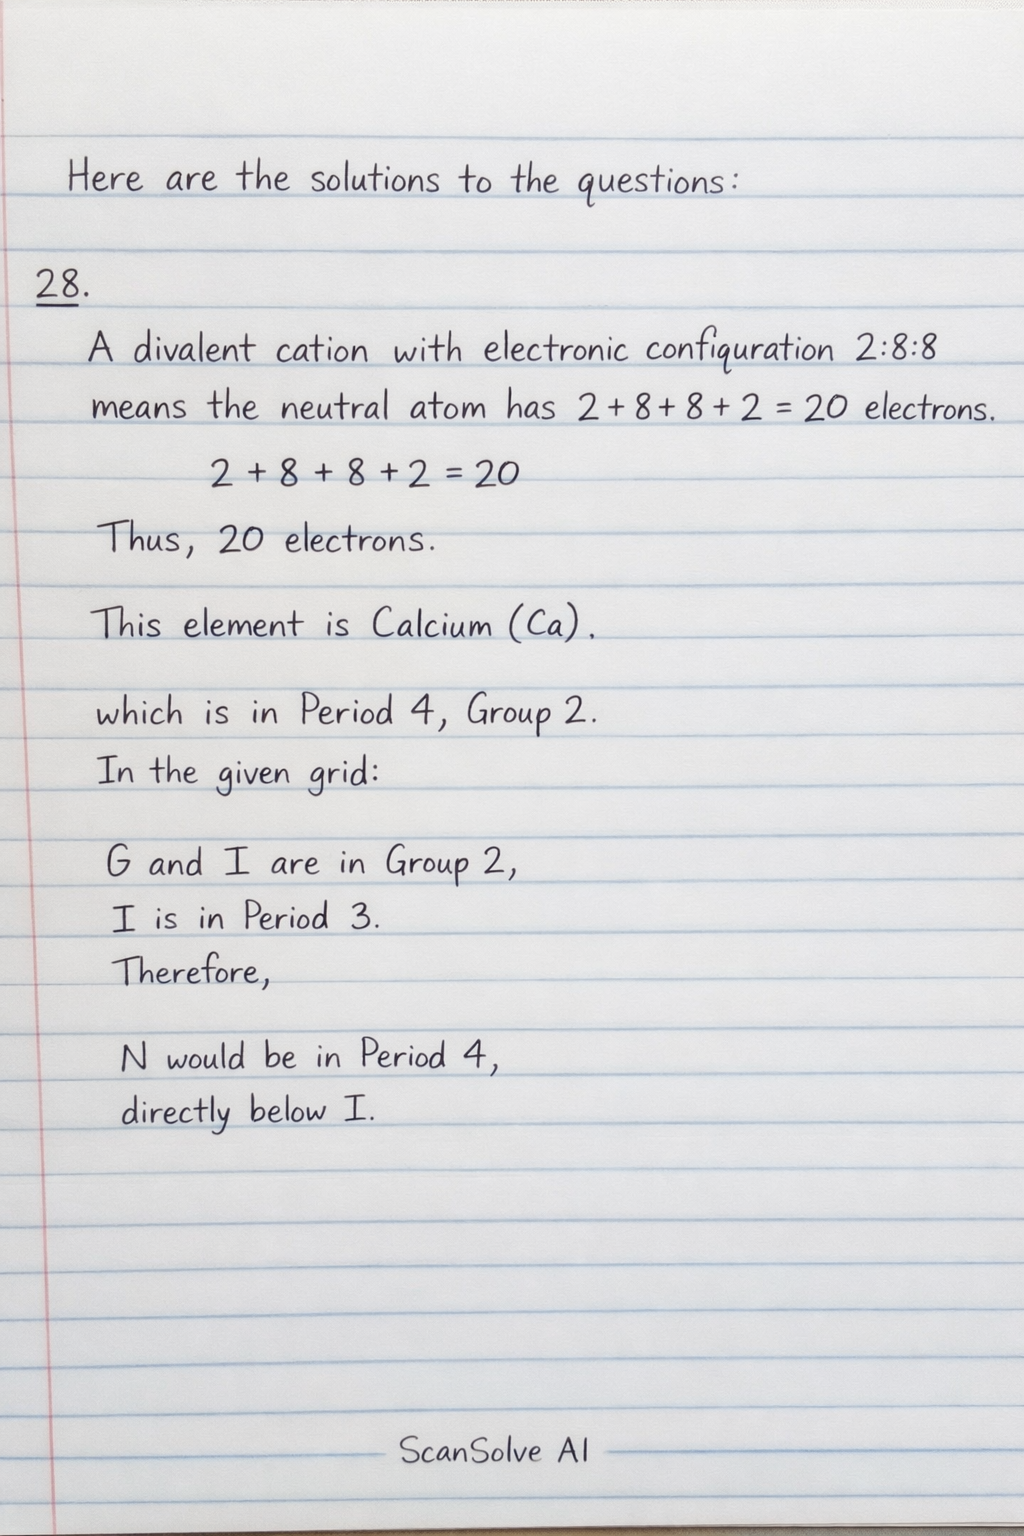 Here are the solutions to the questions:
28.
A divalent cation with electronic configuration 2:8:8
means the neutral atom has 2 + 8 + 8 + 2 = 20 electrons.
2 + 8 + 8 + 2 = 20
Thus, 20 electrons.
This element is Calcium (Ca).
which is in Period 4, Group 2.
In the given grid:
G and I are in Group 2,
I is in Period 3.
Therefore,
N would be in Period 4,
directly below I.
ScanSolve AI